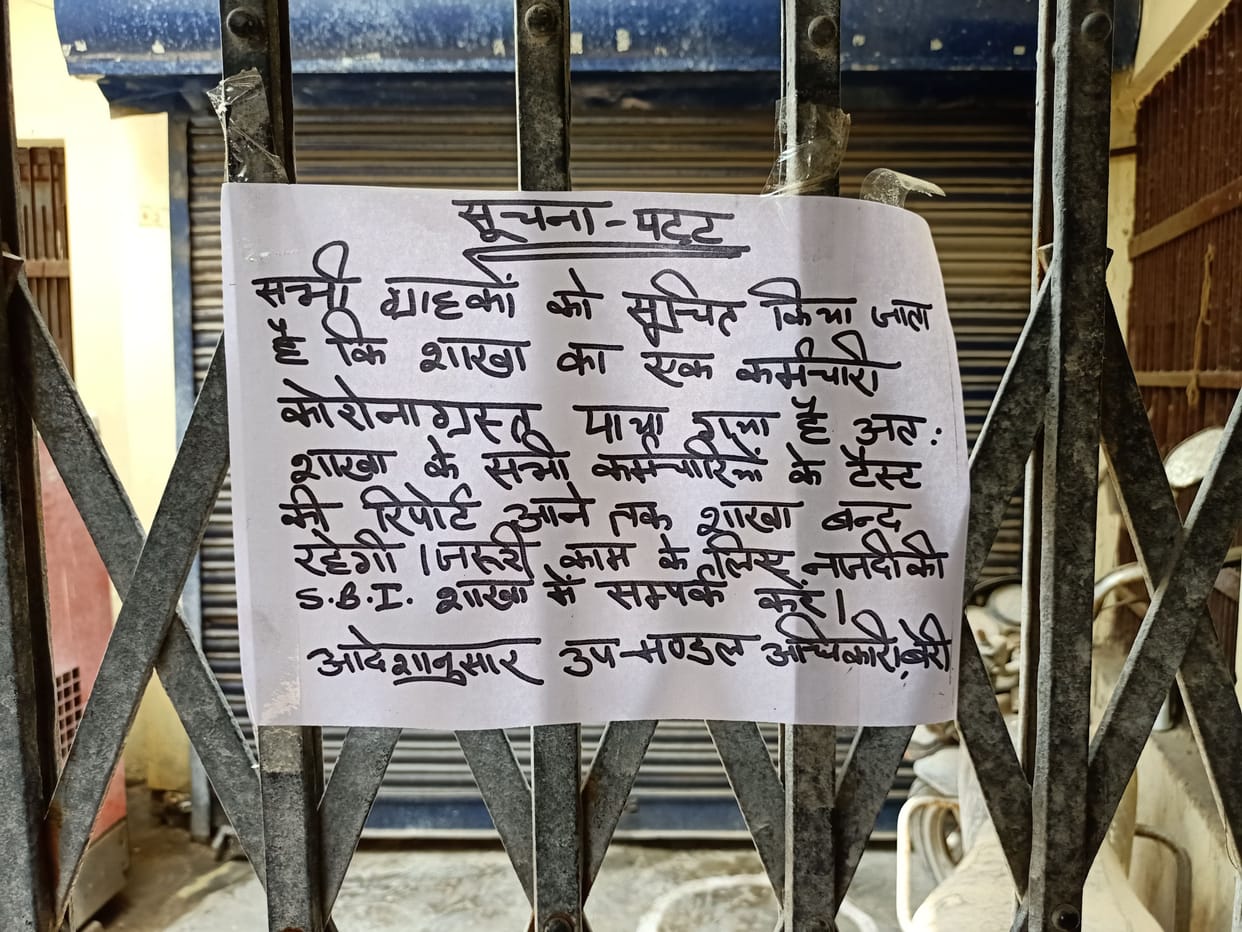 सूचना-पटट
सभी ग्राहकों को सूचित किया जाता
है कि शाखा का एक कर्मचारी
कोरोनाग्रस्त पाया गया है अत:
शाखा के सभी कर्मचारियों के टैस्ट
की रिपोर्ट आने तक शाखा बन्द
रहेगी । जरूरी काम के लिए नजदीकी
S.B.I. शाखा में सम्पर्क करें ।
आदेशानुसार उप-मण्डल अधिकारी, बेरी